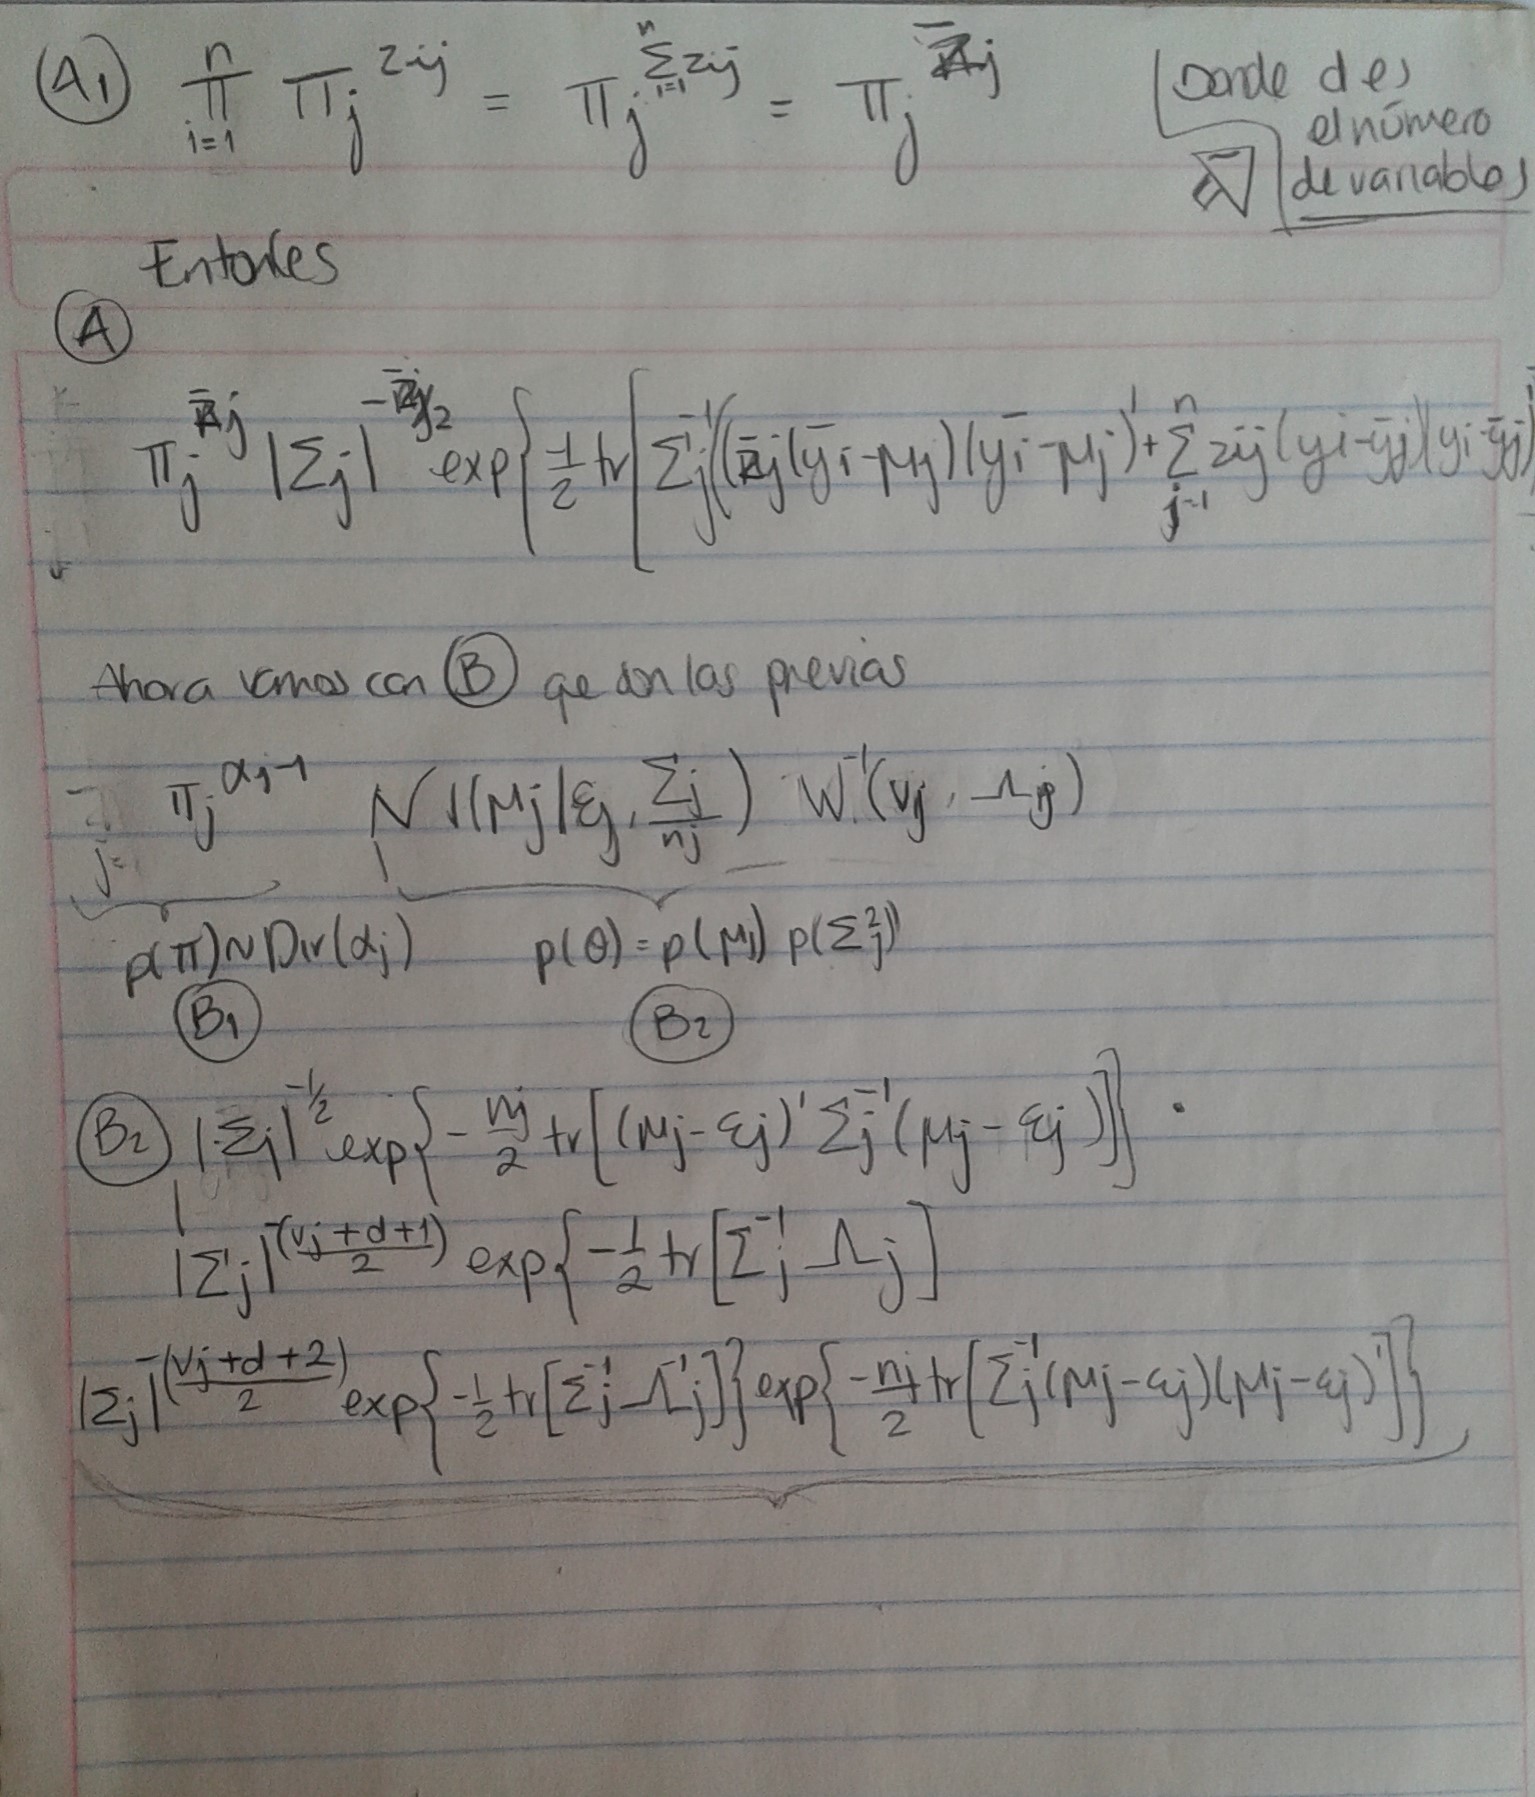 (A1) ∏_{i=1}^{n} π_j^{zij} = π_j^{∑_{i=1}^{n} zij} = π_j^{z̄j}
Donde d es
el número
de variables
Entonces
(A)
π_j^{z̄j} |Σj|^{-z̄j/2} exp{ 1/2 tr[ Σj^{-1}( z̄j(ȳi-μj)(ȳi-μj)' + ∑_{j=1}^{n} zij(yi-ȳj)(yi-ȳj)'
Ahora vamos con (B) qe son las previas
π_j^{αj-1} N(μj|ξj, Σj/nj) W^{-1}(vj, Λj)
p(π)~Dir(αj) p(θ)=p(μj) p(Σj^2)
(B1) (B2)
(B2) |Σj|^{-1/2} exp{ -nj/2 tr[(μj-ξj)' Σj^{-1} (μj-ξj)]} ·
|Σj|^{-(vj+d+1)/2} exp{ -1/2 tr[Σj^{-1} Λj]
|Σj|^{-(vj+d+2)/2} exp{ -1/2 tr[Σj^{-1} Λj^{-1}]} exp{ -nj/2 tr[Σj^{-1}(μj-ξj)(μj-ξj)']}